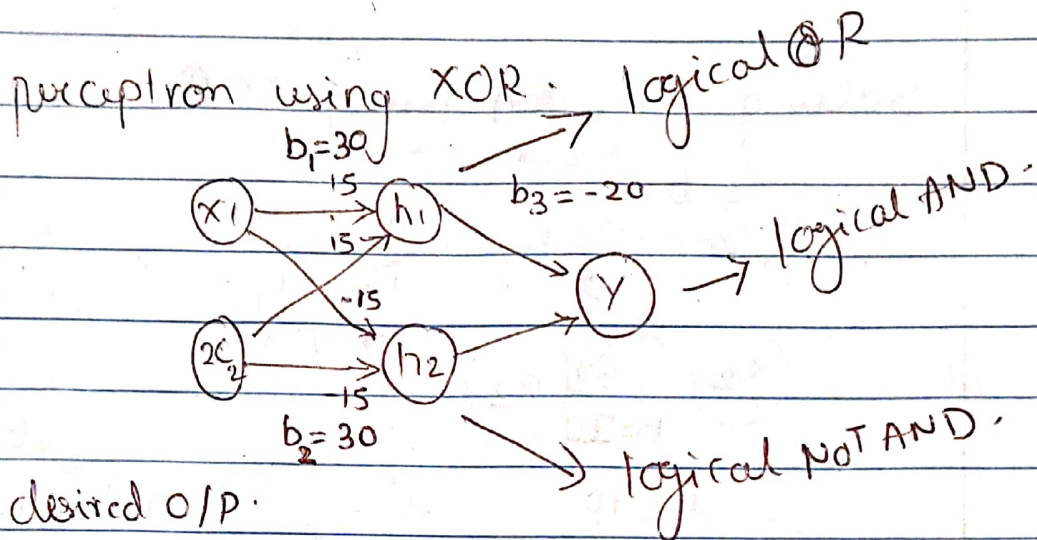 perceptron using XOR. logical OR
b₁=30
15
x1 h1 b₃=-20
15 logical AND.
-15 Y
x₂ h2
-15
b₂=30
logical NOT AND.
desired O/P.